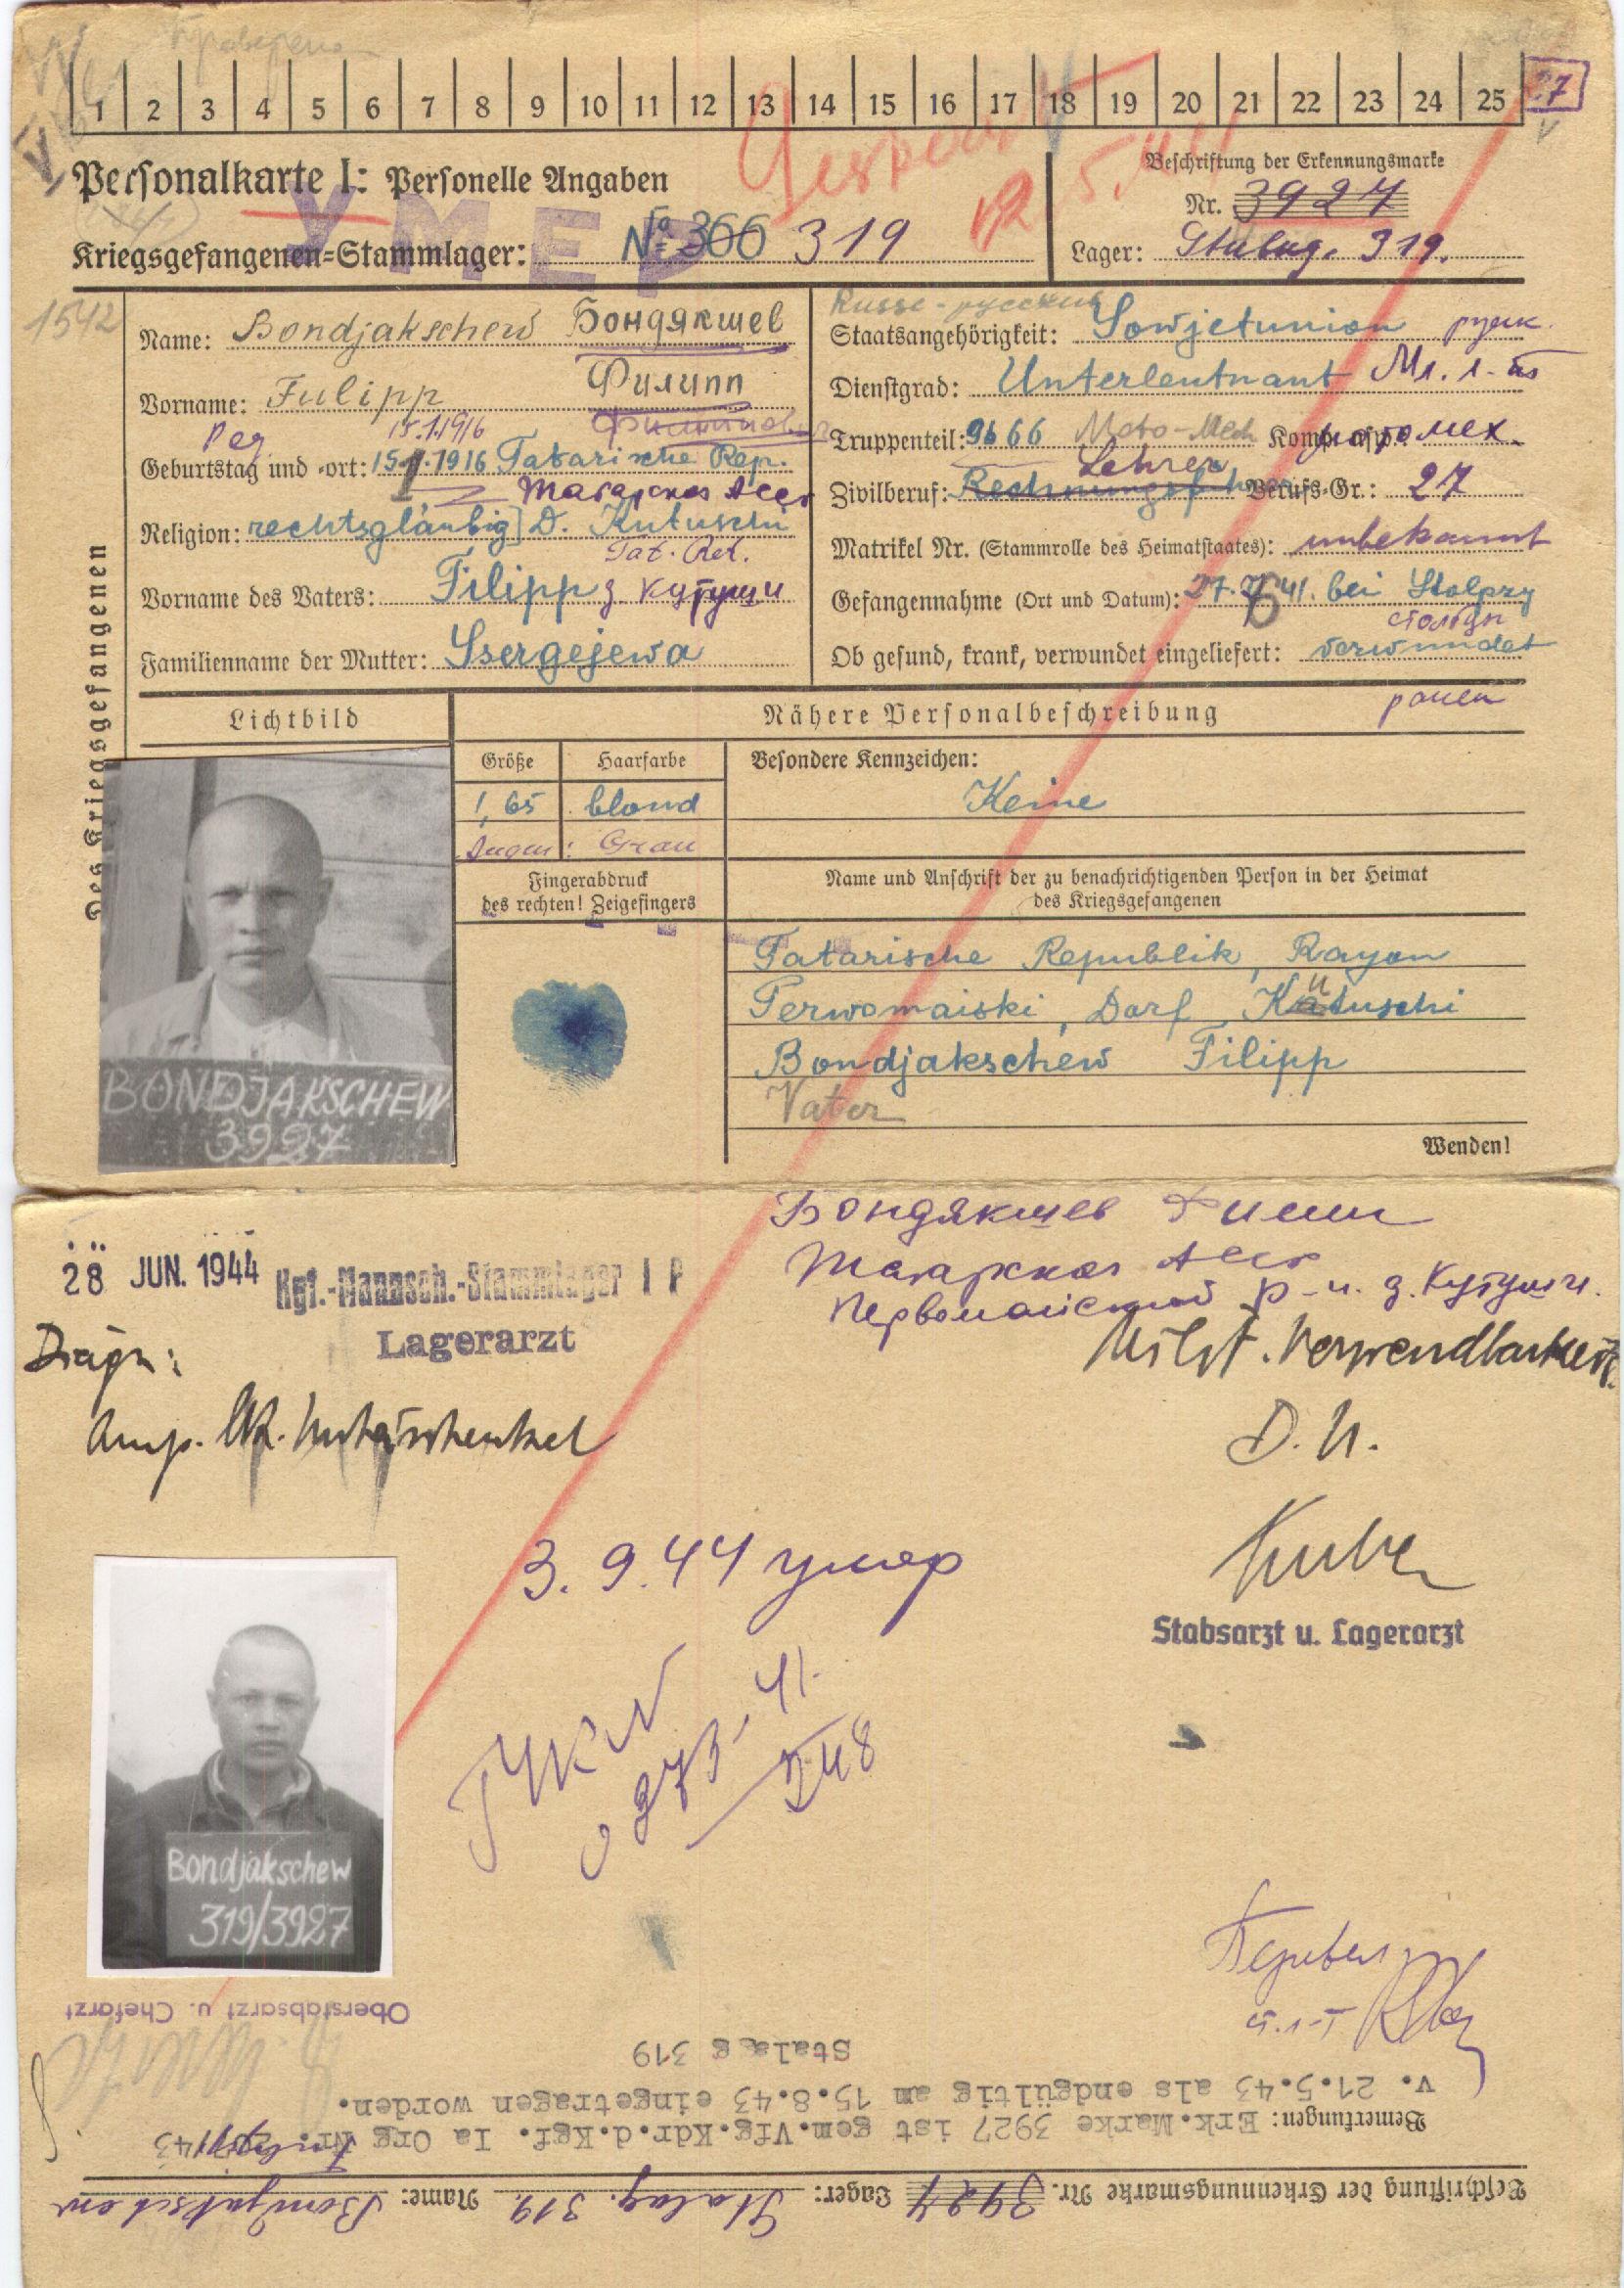 1 2 3 4 5 6 7 8 9 10 11 12 13 14 15 16 17 18 19 20 21 22 23 24 25 27
Personalkarte I: Personelle Angaben
УМЕР
Kriegsgefangenen-Stammlager: № 366 319
Beschriftung der Erkennungsmarke
Nr. 3927
Lager: Stalag. 319.
1542
Des Kriegsgefangenen
Name: Bondjakschew Бондякшев
Vorname: Fulipp Филипп
15.1.1916
Geburtstag und -ort: 15.1.1916 Tatarische Rep.
Татарская Асср
Religion: rechtsgläubig D. Kutuschi
Vorname des Vaters: Filipp д Кутуши
Familienname der Mutter: Ssergejewa
Russe - русский
Staatsangehörigkeit: Sowjetunion русск.
Dienstgrad: Unterleutnant Мл. л-т
Truppenteil: 9666 Moto-Mech Komp. usw.: мотомех.
Lehrer
Zivilberuf: Berufs-Gr.: 27
Matrikel Nr. (Stammrolle des Heimatstaates): unbekannt
Gefangennahme (Ort und Datum): 27.6.41. bei Stolpzy
столбцы
Ob gesund, krank, verwundet eingeliefert: verwundet
ранен
Lichtbild
Nähere Personalbeschreibung
Größe Haarfarbe Besondere Kennzeichen:
1,65 blond Keine
Augen: Grau
Fingerabdruck
des rechten! Zeigefingers
Name und Anschrift der zu benachrichtigenden Person in der Heimat
des Kriegsgefangenen
Tatarische Republik, Rayon
Perwomaiski, Dorf Kutuschi
Bondjakschew Filipp
Vater
Wenden!
BONDJAKSCHEW
3927
Бондякшев Филип
Татарская Асср
Первомайский р-н. д. Кутуши.
28 JUN. 1944
Kgf.-Mannsch.-Stammlager I
Lagerarzt
Diagn:
Amp. Unterschenkel
Milit. Verwendbarkeit
D. U.
3. 9. 44 умер
Stabsarzt u. Lagerarzt
Bondjakschew
319/3927
Перевел
Oberstabsarzt u. Chefarzt
Beschriftung der Erkennungsmarke Nr. 3927 Lager: Stalag. 319. Name: Bondjakschew
Bemerkungen: Erk.Marke 3927 ist gem.Vfg.Kdr.d.Kgf. Ia Org Nr.
v. 21.5.43 als endgültig am 15.8.43 eingetragen worden.
Stalag 319